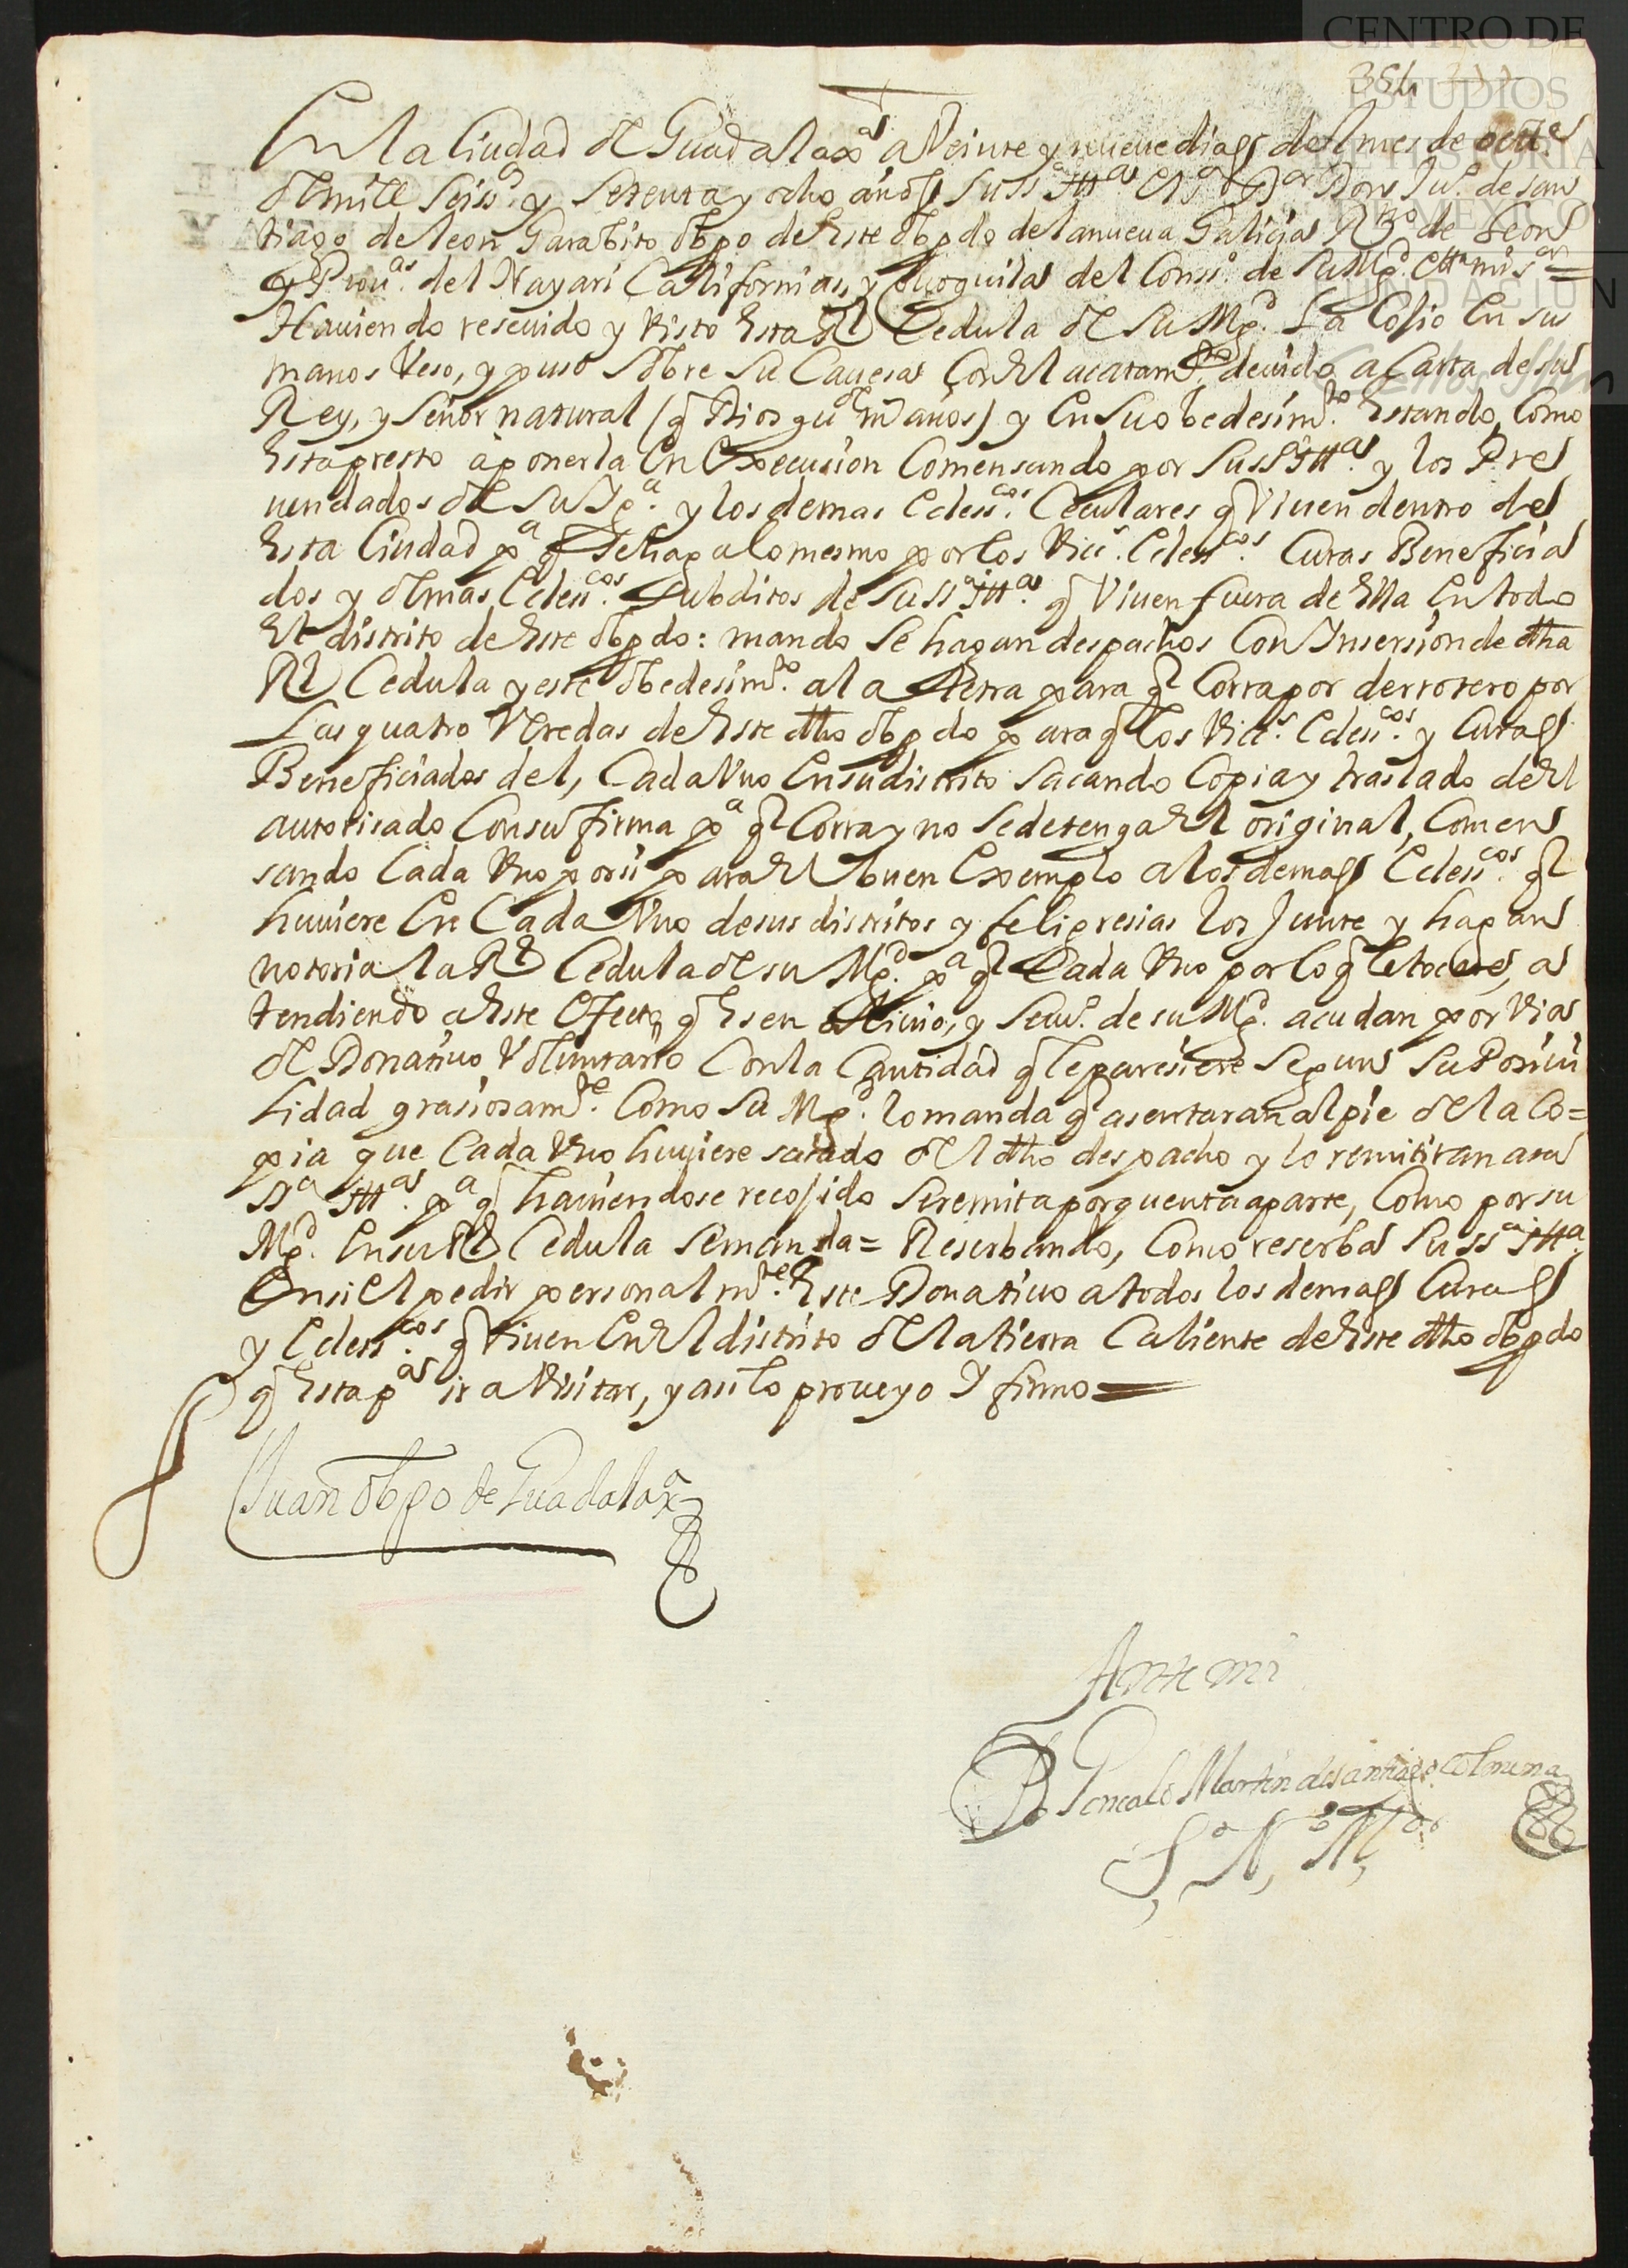 CENTRO DE
ESTUDIOS
DE HISTORIA
DE MÉXICO
FUNDACIÓN
Carlos Slim
354
En la Ciudad de Guadalaxª a Veinte y nueve dias del mes de octte
de mill seissº y setenta y ocho años su ssª Illª el Sr Dor Don Juº de san
tiago de leon Garabito obpo de este obpdo de la nueva Galicia Rno de Leon
y Prouas del Nayari Californias, y Coaguila del Consº de su Mgd. etta mi sor =
Hauiendo reseuido y visto esta Rl Cedula de su Mgd. La Cojio En sus
manos Veso, y puso sobre su Cauesa Con el acatamto deuido a Carta de su
Rey, y Señor natural (q Dios gude ms años) y En su obedesimto. Estando, Como
Esta presto a ponerla En Execusion Comensando por su ssª Illª. y los Pre
uendados de su Sgª. y los demas Ecless.cos Ceculares q Viuen dentro de
Esta Ciudad pª q Se haga lo mesmo por los Vics. Ecless.cos Curas Beneficia
dos y demas Ecless.cos Subditos de su ssª Illª. q Viuen fuera de Ella En todo
El distrito de Este obpdo: mando Se hagan despachos Con Insersion de dha
Rl Cedula y este obedesimto. a la Letra para q Corra por derrotero por
Las quatro Veredas de Este dho obpdo para q los Vics. Ecless.cos y Curas
Beneficiados del, Cada Vno En su distrito sacando Copia y traslado de El
autorisado Con su firma pª q Corra y no Se detenga El original, Comen
sando Cada Vno por si para El buen Exemplo a los demas Ecless.cos q
huuiere En Cada Vno de sus distritos y feligresias los Junte y hagan
notoria la Rl Cedula de su Mgd. pª q Cada Vno por lo q le tocare, a
tendiendo a Este Efecto q Es en aliuio, y Seruº. de su Mgd. acudan por via
de Donatiuo Voluntario Con la Cantidad q le paresiere Segun Su Posiui
lidad grasiosamte. Como Su Mgd. lo manda q asentaran al pie de la Co=
pia que Cada Vno huuiere sacado del dho despacho y lo remitiran a su
ssª Illª. pª q hauiendose recojido Se remita por quenta aparte, Como por su
Mgd. En su Rl Cedula Se manda = Reserbando, Como reserba Su ssª Illª.
En si El pedir personalmte. Este Donatiuo a todos los demas Curas
y Ecless.cos q Viuen En El distrito de la tierra Caliente de Este dho obpdo
q Esta pª ir a Visitar, y asi lo proueyo Y firmo =
Juan obpo de Guadalaxª
Ante mi
Br Goncalo Martin de santiago Colmena
Sº Nº Mdo